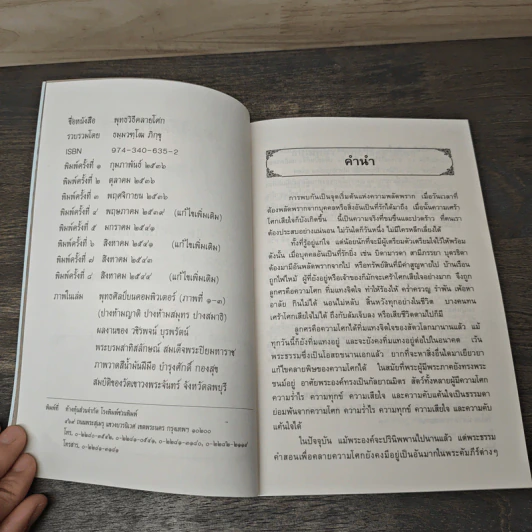 ชื่อหนังสือ พุทธวิธีคลายโศก
รวบรวมโดย ธมฺมวฑฺโฒ ภิกฺขุ
ISBN 974-340-635-2
พิมพ์ครั้งที่ ๑ กุมภาพันธ์ ๒๕๓๖
พิมพ์ครั้งที่ ๒ ตุลาคม ๒๕๓๖
พิมพ์ครั้งที่ ๓ พฤศจิกายน ๒๕๓๖
พิมพ์ครั้งที่ ๔ พฤษภาคม ๒๕๓๙ (แก้ไขเพิ่มเติม)
พิมพ์ครั้งที่ ๕ มกราคม ๒๕๔๑
พิมพ์ครั้งที่ ๖ สิงหาคม ๒๕๔๑ (แก้ไขเพิ่มเติม)
พิมพ์ครั้งที่ ๗ สิงหาคม ๒๕๔๓
พิมพ์ครั้งที่ ๘ สิงหาคม ๒๕๔๔ (แก้ไขเพิ่มเติม)
ภาพในเล่ม พุทธศิลป์บนคอมพิวเตอร์ (ภาพที่ ๑-๓)
(ปางห้ามญาติ ปางห้ามสมุทร ปางสมาธิ)
ผลงานของ วชิรพจน์ บุรพรัตน์
พระบรมสาทิสลักษณ์ สมเด็จพระปิยมหาราช
ภาพวาดสีน้ำมันฝีมือ บำรุงศักดิ์ กองสุข
สมบัติของวัดเขาวงพระจันทร์ จังหวัดลพบุรี
พิมพ์ที่ ห้างหุ้นส่วนจำกัด โรงพิมพ์ชวนพิมพ์
คำนำ
การพบกันเป็นจุดเริ่มต้นแห่งความพลัดพราก เมื่อวันเวลาที่
ต้องพลัดพรากจากบุคคลหรือสิ่งอันเป็นที่รักได้มาถึง เมื่อนั้นความเศร้า
โศกเสียใจก็บังเกิดขึ้น นี้เป็นความจริงที่ขมขื่นและปวดร้าว ที่คนเรา
ต้องประสบอย่างแน่นอน ไม่วันใดก็วันหนึ่ง ไม่มีใครหลีกเลี่ยงได้
ทั้งที่รู้อยู่แก่ใจ แต่น้อยนักที่จะมีผู้เตรียมตัวเตรียมใจไว้ให้พร้อม
ดังนั้น เมื่อบุคคลอันเป็นที่รักยิ่ง เช่น บิดามารดา สามีภรรยา บุตรธิดา
ต้องมามีอันพลัดพรากจากไป หรือทรัพย์สินที่มีค่าสูญหายไป บ้านเรือน
ถูกไฟไหม้ ผู้ที่ยังอยู่หรือเจ้าของก็มักจะเศร้าโศกเสียใจอย่างมาก จึงถูก
ลูกศรคือความโศก ที่แทงจิตใจ ทำให้ร้องไห้ คร่ำครวญ รำพัน เพ้อหา
อาลัย กินไม่ได้ นอนไม่หลับ สิ้นหวังทุกอย่างในชีวิต บางคนทน
เศร้าโศกเสียใจไม่ได้ ถึงกับล้มเจ็บลง หรือเสียชีวิตตามไปก็มี
ลูกศรคือความโศกได้ที่แทงจิตใจของสัตว์โลกมานานแล้ว แม้
ทุกวันนี้ก็ยังทิ่มแทงอยู่ และจะยังคงทิ่มแทงอยู่ต่อไปในอนาคต เว้น
พระธรรมซึ่งเป็นโอสถขนานเอกแล้ว ยากที่จะหาสิ่งอื่นใดมาเยียวยา
แก้ไขคลายพิษของความโศกได้ ในสมัยที่พระผู้มีพระภาคยังทรงพระ
ชนม์อยู่ อาศัยพระองค์ทรงเป็นกัลยาณมิตร สัตว์ทั้งหลายผู้มีความโศก
ความร่ำไร ความทุกข์ ความเสียใจ และความคับแค้นใจเป็นธรรมดา
ย่อมพ้นจากความโศก ความร่ำไร ความทุกข์ ความเสียใจ และความคับ
แค้นใจได้
ในปัจจุบัน แม้พระองค์จะปรินิพพานไปนานแล้ว แต่พระธรรม
คำสอนเพื่อคลายความโศกยังคงมีอยู่เป็นอันมากในพระคัมภีร์ต่างๆ